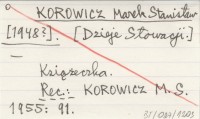 KOROWICZ Marek Stanisław
[1948?]. [Dzieje Słowacji.]
—
Książeczka.
Rec.: KOROWICZ M. S.
1955: 91.